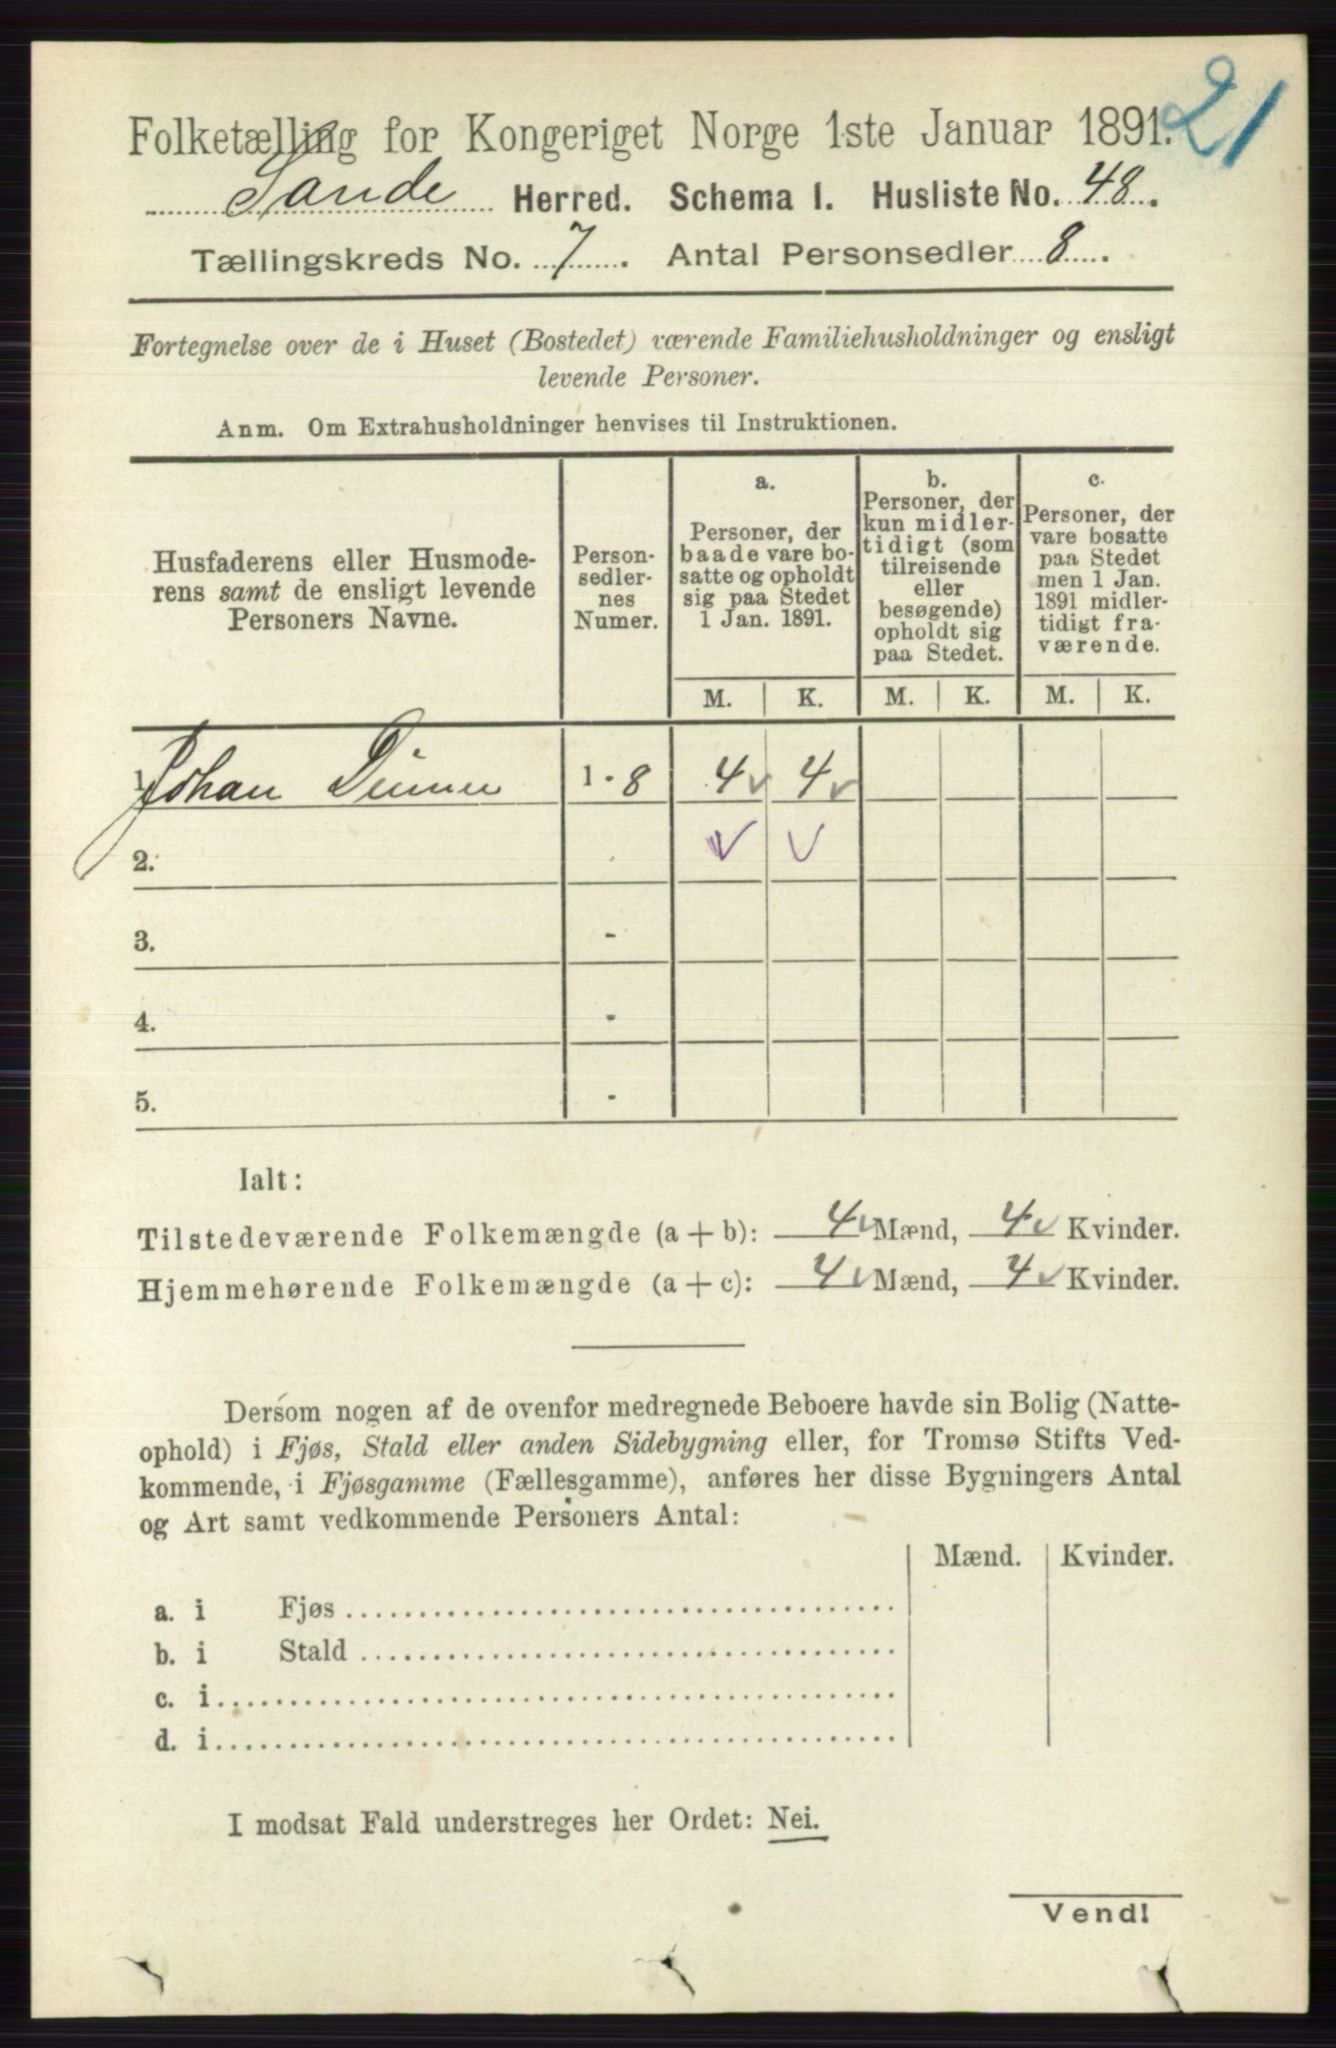 21
Folketælling for Kongeriget Norge 1ste Januar 1891.
Sande Herred. Schema 1. Husliste No. 48.
Tællingskreds No. 7. Antal Personsedler 8.
Fortegnelse over de i Huset (Bostedet) værende Familiehusholdninger og ensligt
levende Personer.
Anm. Om Extrahusholdninger henvises til Instruktionen.
Husfaderens eller Husmode-
rens samt de ensligt levende
Personers Navne.
Person-
sedler-
nes
Numer.
a.
Personer, der
baade vare bo-
satte og opholdt
sig paa Stedet
1 Jan. 1891.
b.
Personer, der
kun midler-
tidigt (som
tilreisende
eller
besøgende)
opholdt sig
paa Stedet.
c.
Personer, der
vare bosatte
paa Stedet
men 1 Jan.
1891 midler-
tidigt fra-
værende.
M. K. M. K. M. K.
1. Johan 1 - 8 4 4
2.
3. -
4. -
5. -
Ialt:
Tilstedeværende Folkemængde (a + b): 4 Mænd, 4 Kvinder.
Hjemmehørende Folkemængde (a + c): 4 Mænd, 4 Kvinder.
Dersom nogen af de ovenfor medregnede Beboere havde sin Bolig (Natte-
ophold) i Fjøs, Stald eller anden Sidebygning eller, for Tromsø Stifts Ved-
kommende, i Fjøsgamme (Fællesgamme), anføres her disse Bygningers Antal
og Art samt vedkommende Personers Antal:
Mænd. Kvinder.
a. i Fjøs
b. i Stald
c. i
d. i
I modsat Fald understreges her Ordet: Nei.
Vend!